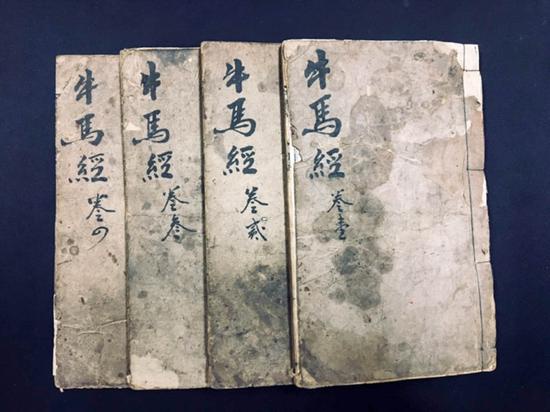 牛馬經
卷壹
牛馬經
卷貳
牛馬經
卷叁
牛馬經
卷四